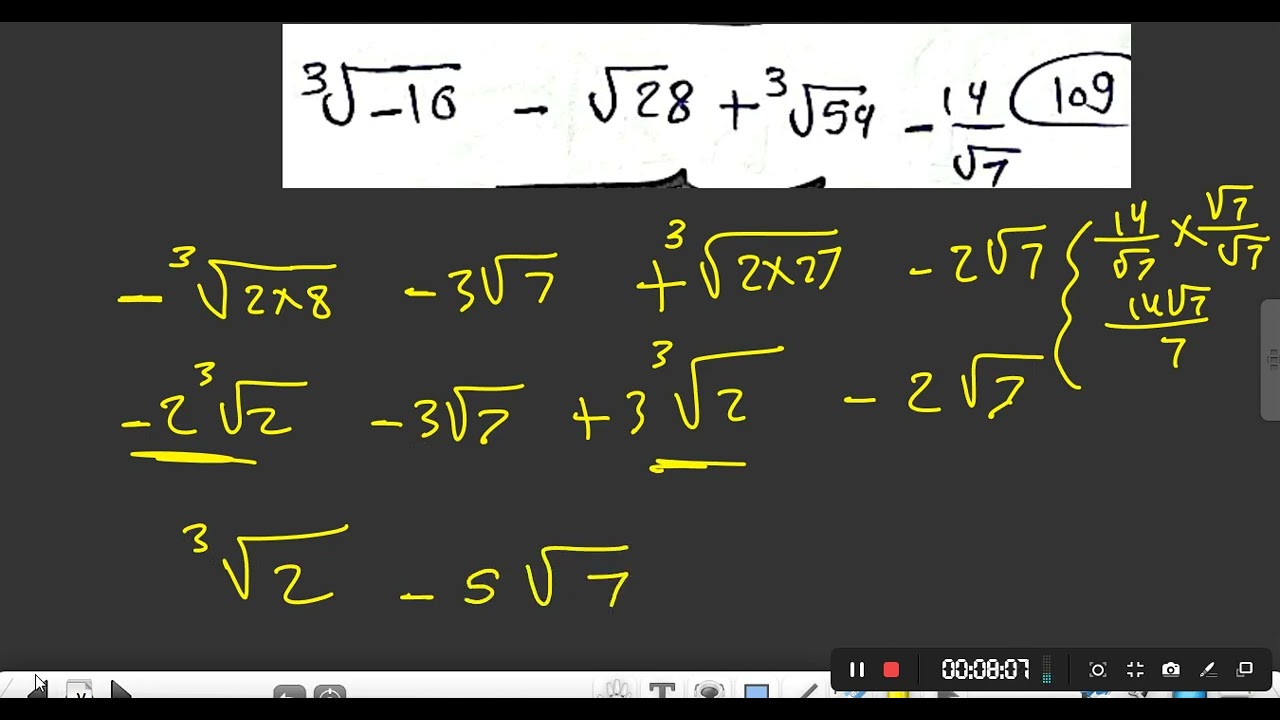 ∛-16 - √28 + ∛54 - 14/√7 109
- ∛2×8 - 3√7 + ∛2×27 - 2√7 { 14/√7 × √7/√7
14√7/7
-2∛2 - 3√7 + 3∛2 - 2√7
∛2 - 5√7
00:08:07